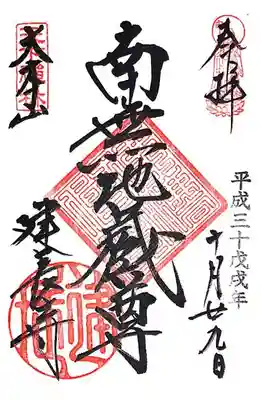 奉拝
平成三十戊戌年
十月廿九日
南無地蔵尊
大本山
建長寺